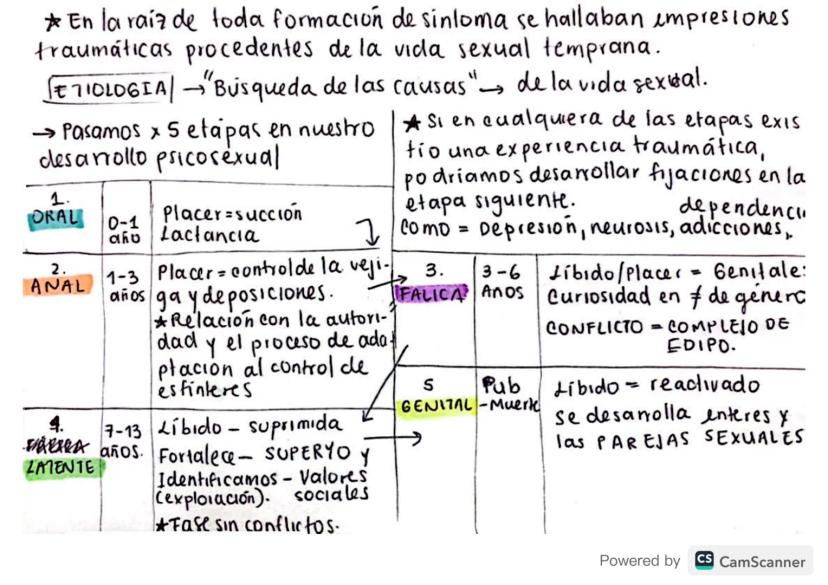 ★ En la raíz de toda formación de síntoma se hallaban impresiones
traumáticas procedentes de la vida sexual temprana.
ETIOLOGIA → "Búsqueda de las causas" → de la vida sexual.
→ Pasamos x 5 etapas en nuestro
desarrollo psicosexual
★ Si en cualquiera de las etapas exis
tío una experiencia traumática,
podríamos desarrollar fijaciones en la
etapa siguiente.
dependenci
Como = Depresión, neurosis, adicciones,
1.
ORAL
0-1
año
Placer = succión
Lactancia
2.
ANAL
1-3
años
Placer = control de la veji-
ga y deposiciones.
★ Relación con la autori-
dad y el proceso de ada
ptación al control de
esfínteres
3.
FALICA
3-6
Años
Líbido/Placer = Genitale
Curiosidad en ≠ de género
CONFLICTO = COMPLEJO DE
EDIPO.
4.
LATENTE
7-13
años.
Líbido - suprimida
Fortalece - SUPERYO y
Identificamos - Valores
(exploración). sociales
★ Fase sin conflictos.
5
GENITAL
Pub
-Muerte
Líbido = reactivado
se desarrolla interes x
las PAREJAS SEXUALES
Powered by CS CamScanner